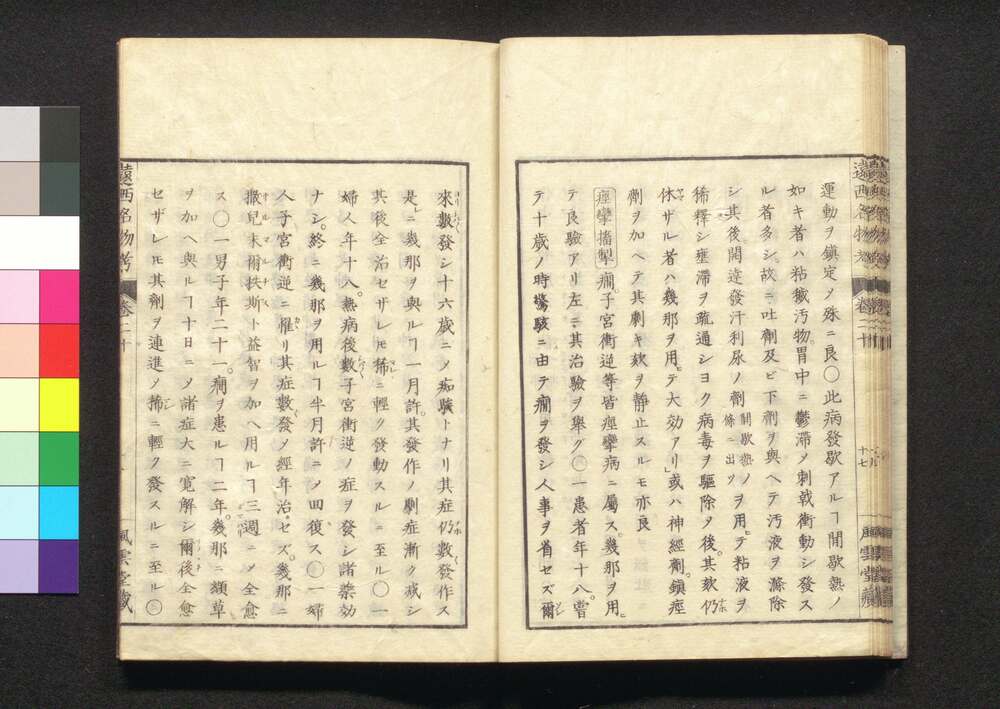 運動ヲ鎮定ノ殊ニ良〇此病發歇アルヿ間歇熱ノ
如キ者ハ粘黐汚物胃中ニ鬱滞メ刺戟衝動シ發ス
ル者多シ故ニ吐劑及ビ下劑ヲ與ヘテ汚液ヲ滌除
シ其後開達發汗利尿ノ劑間歇熱ノ條ニ出ツヲ用テ粘液ヲ
稀釋シ壅滞ヲ疏通シヨク病毒ヲ驅除メ後其欬仍
休ザル者ハ幾那ヲ用テ大効アリ或ハ神經劑鎮痙
劑ヲ加ヘテ其劇キ欬ヲ静止スルモ亦良
痙攣搐掣 癇子宮衝逆等皆痙攣病ニ屬ス幾那ヲ用
テ良驗アリ左ニ其治驗ヲ舉グ〇一患者年十八曽
テ十歳ノ時驚駭ニ由テ癇ヲ發シ人事ヲ省セズ爾
來數發シ十六歳ニメ痴騃トナリ其症仍數發發作ス
是ニ幾那ヲ與ルヿ一月許其發作ノ劇症漸ク减シ
其後全治セザレモ稀ニ輕ク發動スルニ至ル〇一
婦人年十八熱病後數子宮衝逆ノ症ヲ發シ諸藥効
ナシ終ニ幾那ヲ用ルヿ半月許ニメ回復ス〇一婦
人子宮衝逆ニ罹リ其症數發メ經年治セズ幾那ニ
撒兒末爾扶斯ト益智ヲ加ヘ用ルヿ三週ニメ全愈
ス〇一男子年二十一癇ヲ患ルヿ二年幾那ニ纈草
ヲ加ヘ與ルヿ十日ニメ諸症大ニ寛解シ爾後全愈
セザレモ其劑ヲ連進メ稀ニ輕ク發スルニ至ル〇
遠西名物考 卷二十 風雲堂藏